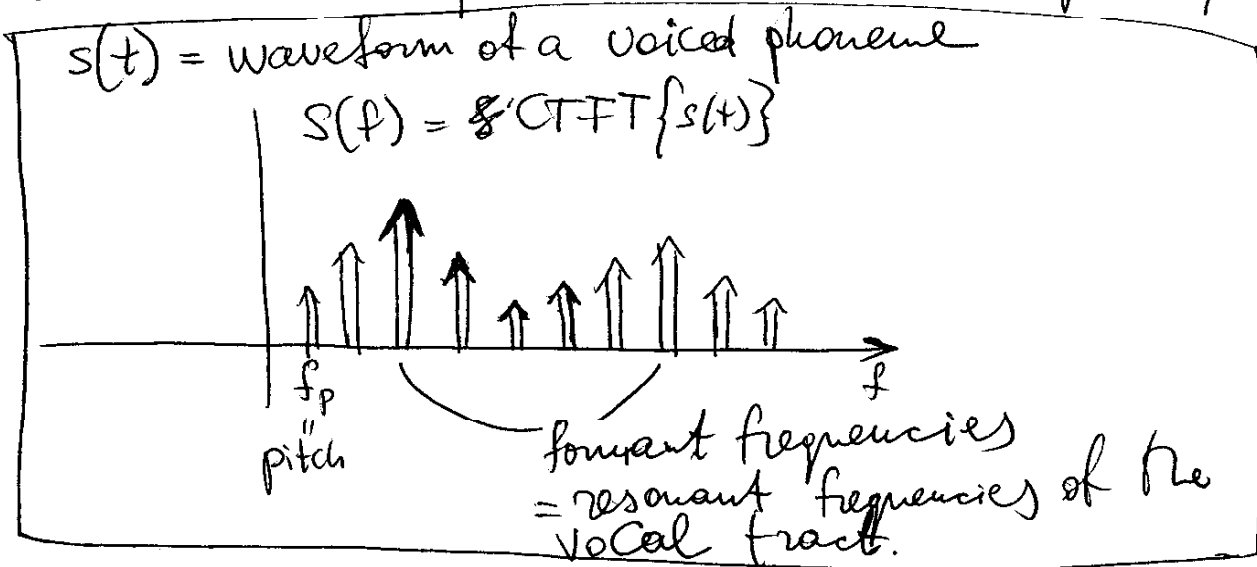 s(t) = waveform of a voiced phoneme
S(f) = CTFT{s(t)}
f_p
f
"
pitch
formant frequencies
= resonant frequencies of the
vocal tract.